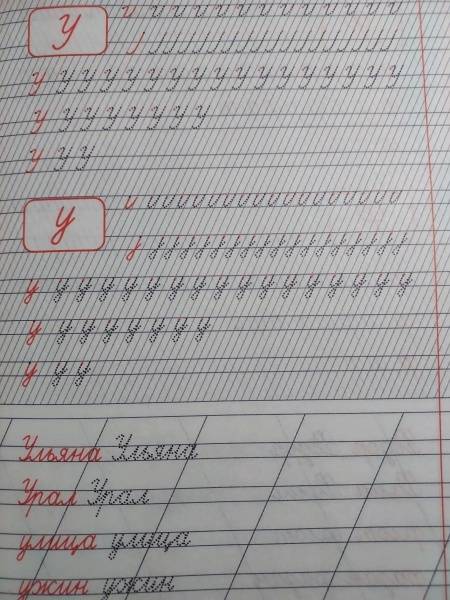 У
У У У У У У У У У У У У У У У У
У У У У У У У У
У У У
у
у у у у у у у у у у у у у у у у
у у у у у у у у
у у у
Ульяна Ульяна
Урал Урал
улица улица
ужин ужин